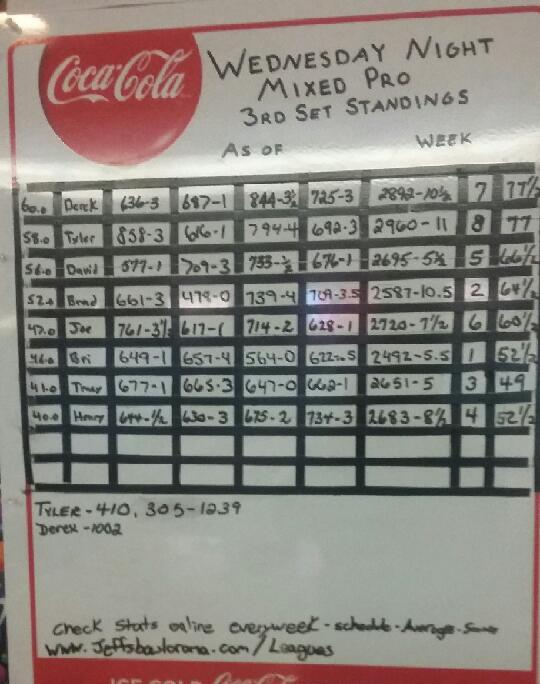 Coca-Cola
WEDNESDAY NIGHT
MIXED PRO
3RD SET STANDINGS
AS OF WEEK
60.0 Derek 636-3 687-1 844-3½ 725-3 2892-10½ 7 77½
58.0 Tyler 858-3 616-1 794-4 692-3 2960-11 8 77
56.0 David 577-1 709-3 733-½ 676-1 2695-5½ 5 66½
52.0 Brad 661-3 478-0 739-4 709-3.5 2587-10.5 2 64½
47.0 Joe 761-3½ 617-1 714-2 628-1 2720-7½ 6 60½
46.0 Bri 649-1 657-4 564-0 622-.5 2492-5.5 1 52½
41.0 677-1 665-3 647-0 662-1 2651-5 3 49
40.0 Henry 644-½ 630-3 675-2 734-3 2683-8½ 4 52½
TYLER-410, 305-1239
Derek-1002
Check Stats online everyweek - schedule - Average -
www.Jeffsbowlorama.com/Leagues
ICE COLD Coca-Cola